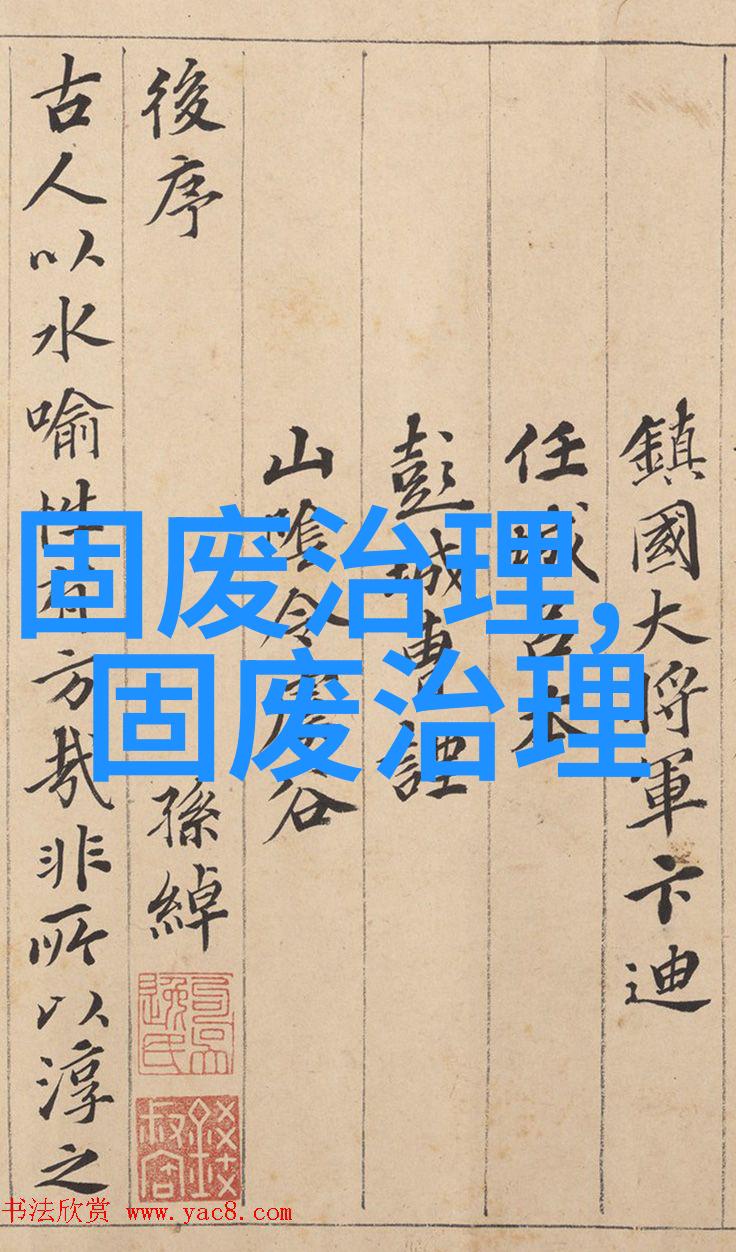 鎮國大将軍卞迪
任城呂本
彭城曹諲
山陰令虞谷
後序 孫綽
古人以水喻性有方哉非所以淳之
固废治理,
固废治理
书法欣赏 www.yac8.com